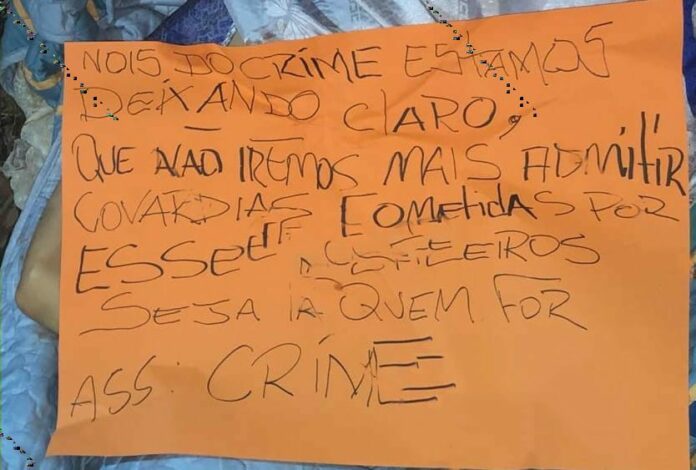 NOIS DO CRIME ESTAMOS
DEIXANDO CLARO,
QUE NÃO IREMOS MAIS ADMITIR
COVARDIAS COMETIDAS POR
ESSE
SEJA LÁ QUEM FOR
ASS: CRIME